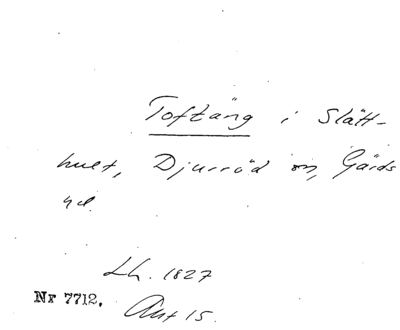 Toftäng i Slätt-
hult, Djurröd sn, Gärds
hd.
Lh. 1827
Nr 7712. Akt 15.